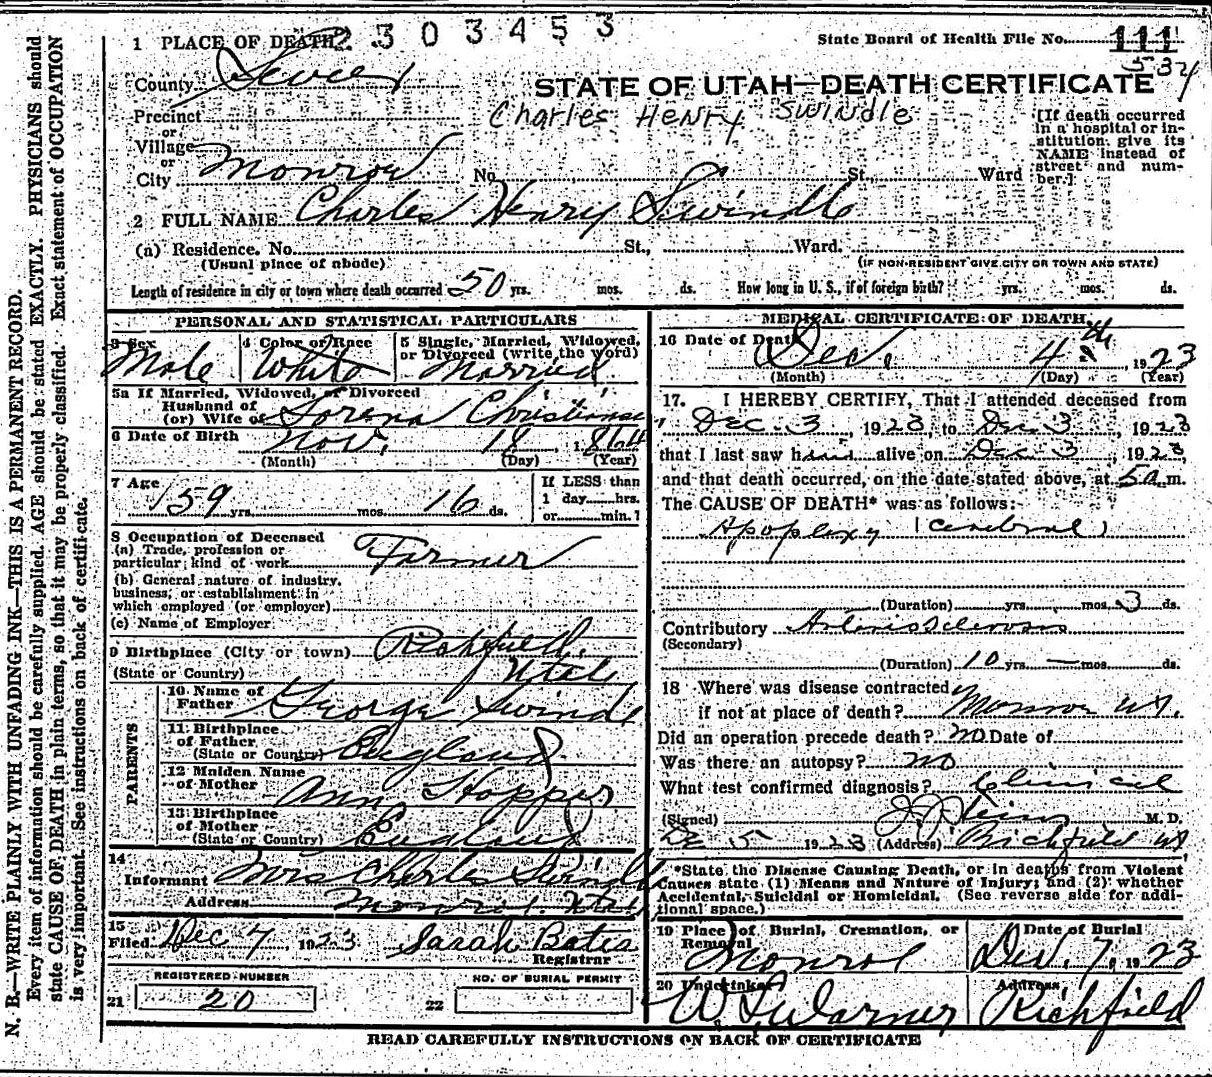 2303453
1 PLACE OF DEATH
State Board of Health File No. 111
534
County Sevier
STATE OF UTAH—DEATH CERTIFICATE
Charles Henry Swindle
Precinct
or
Village
or
City Monroe No. St., Ward
[If death occurred
in a hospital or in-
stitution, give its
NAME instead of
street and num-
ber.]
2 FULL NAME Charles Henry Swindle
(a) Residence. No. St., Ward.
(Usual place of abode)
(IF NON-RESIDENT GIVE CITY OR TOWN AND STATE)
Length of residence in city or town where death occurred 50 yrs. mos. ds. How long in U. S., if of foreign birth? yrs. mos. ds.
PERSONAL AND STATISTICAL PARTICULARS
3 Sex
Male
4 Color or Race
White
5 Single, Married, Widowed,
or Divorced (write the word)
Married
5a If Married, Widowed, or Divorced
Husband of
(or) Wife of Sorena Christianse
6 Date of Birth Nov. 18 1864
(Month) (Day) (Year)
7 Age
59 yrs. mos. 16 ds.
If LESS than
1 day hrs.
or min.?
8 Occupation of Deceased
(a) Trade, profession or
particular kind of work Farmer
(b) General nature of industry,
business, or establishment in
which employed (or employer)
(c) Name of Employer
9 Birthplace (City or town) Richfield,
(State or Country) Utah
PARENTS
10 Name of
Father George Swindl
11 Birthplace
of Father
(State or Country) England
12 Maiden Name
of Mother Ann Hopper
13 Birthplace
of Mother
(State or Country) England
14
Informant Mrs Charles Swindl
Address Monroe. Utah
15
Filed Dec 7 1923 Sarah Bates
Registrar
REGISTERED NUMBER
21 20
NO. OF BURIAL PERMIT
22
MEDICAL CERTIFICATE OF DEATH
16 Date of Death Dec. 4th, 1923
(Month) (Day) (Year)
17. I HEREBY CERTIFY, That I attended deceased from
Dec. 3, 1923, to Dec. 3, 1923
that I last saw him alive on Dec. 3, 1923,
and that death occurred, on the date stated above, at 5a m.
The CAUSE OF DEATH* was as follows:
Apoplexy (cerebral)
(Duration) yrs. mos. 3 ds.
Contributory Arteriosclerosis
(Secondary)
(Duration) 10 yrs. — mos. ds.
18 Where was disease contracted
if not at place of death? Monroe Ut.
Did an operation precede death? no Date of
Was there an autopsy? no
What test confirmed diagnosis? Clinical
(Signed) M. D.
Dec 5 1923 (Address) Richfield Ut
*State the Disease Causing Death, or in deaths from Violent
Causes state (1) Means and Nature of Injury; and (2) whether
Accidental, Suicidal or Homicidal. (See reverse side for addi-
tional space.)
19 Place of Burial, Cremation, or
Removal
Monroe
Date of Burial
Dec. 7, 1923
20 Undertaker
W. L. Warner
Address
Richfield
READ CAREFULLY INSTRUCTIONS ON BACK OF CERTIFICATE
N. B.—WRITE PLAINLY WITH UNFADING INK—THIS IS A PERMANENT RECORD.
Every item of information should be carefully supplied. AGE should be stated EXACTLY. PHYSICIANS should
state CAUSE OF DEATH in plain terms, so that it may be properly classified. Exact statement of OCCUPATION
is very important. See instructions on back of certificate.